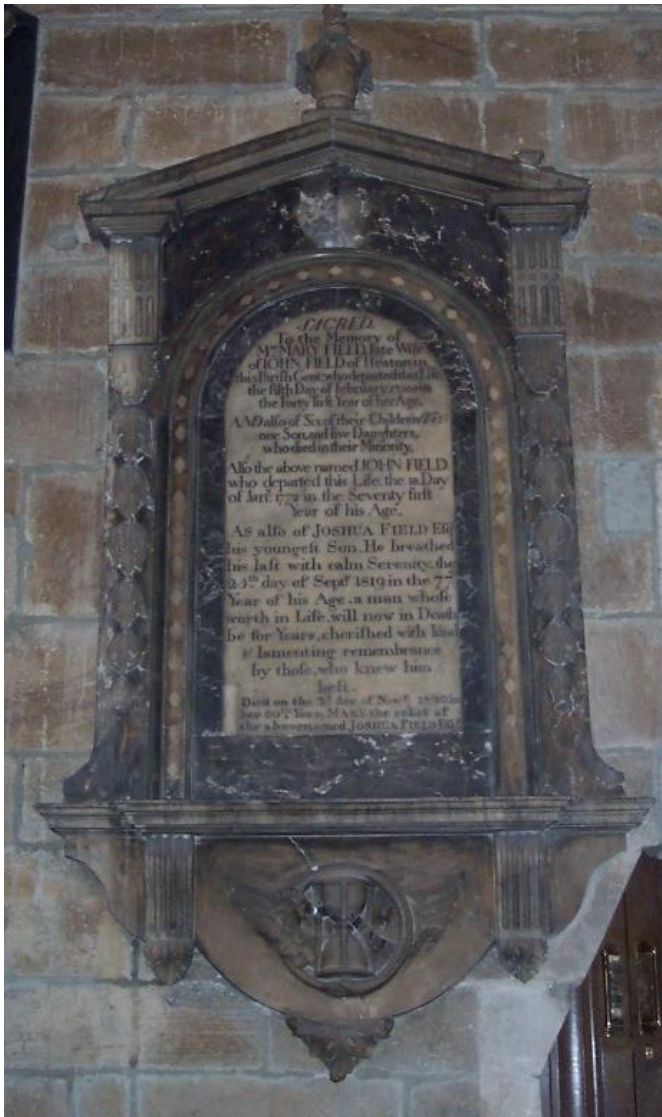 SACRED
To the Memory of
Mrs MARY FIELD, late Wife
of JOHN FIELD of Heaton in
this Parish Gent. who departed this Life
the fifth Day of February in
the Forty first Year of her Age.
AND also of Six of their Children
one Son, and five Daughters,
who died in their Minority.
Also the above named JOHN FIELD
who departed this Life, the 18 Day
of Janry. 1772 in the Seventy first
Year of his Age.
AS also of JOSHUA FIELD Esqr
his youngest Son. He breathed
his last with calm Serenity, the
day of Septr 1819 in the 77
Year of his Age. a man whose
worth in Life, will now in Death
be for Years, cherished with kind
& lamenting remembrance
by those, who knew him
best.
Died on the day of Novr in
her Year, MARY the relict of
the above named JOSHUA FIELD Esqr